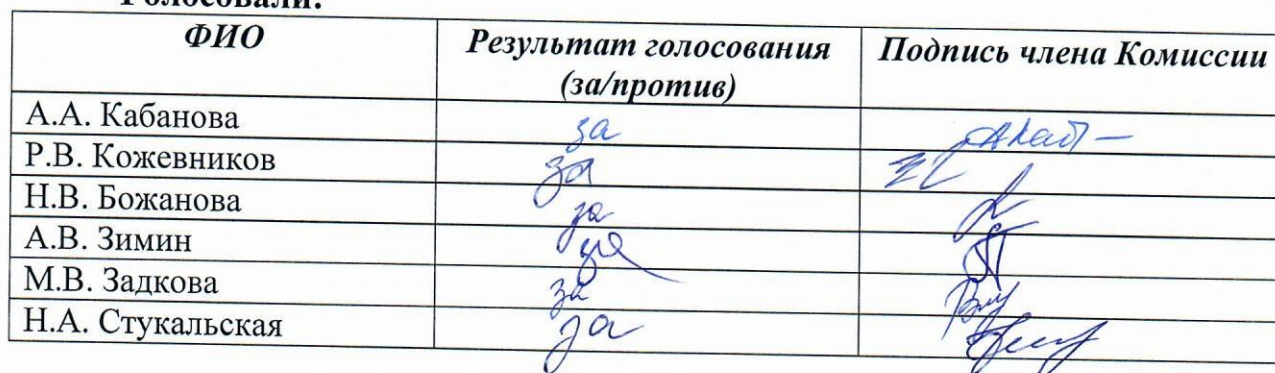 Голосовали:
ФИО Результат голосования (за/против) Подпись члена Комиссии
А.А. Кабанова за
Р.В. Кожевников за
Н.В. Божанова за
А.В. Зимин за
М.В. Задкова за
Н.А. Стукальская за